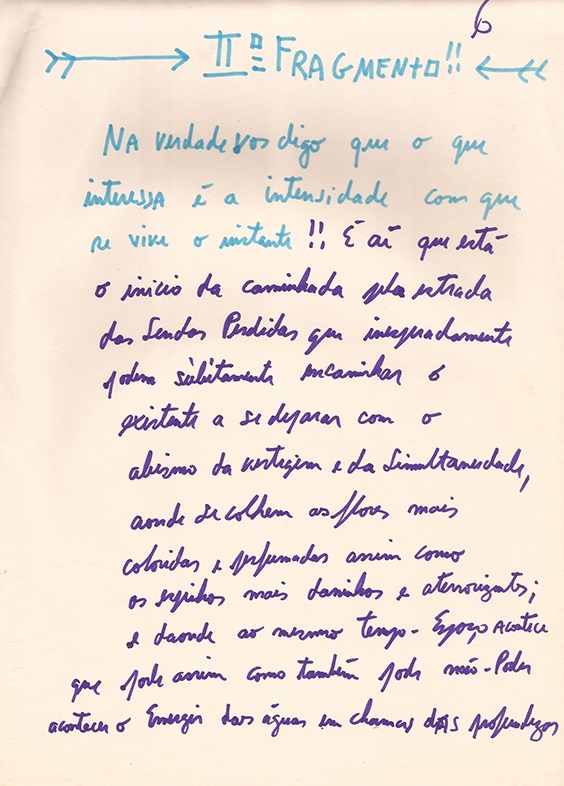 6
IIº FRAGMENTO!!
NA verdade vos digo que o que
interessa é a intensidade com que
se vive o instante!! E aí que está
o início da caminhada pela estrada
das Sendas Perdidas que inesperadamente
podem súbitamente encaminhar o
existente a se deparar com o
abismo da vertigem e da Simultaneidade,
aonde se colhem as flores mais
coloridas e perfumadas assim como
os espinhos mais daninhos e aterrorizantes;
e daonde ao mesmo tempo-Espaço acontece
que pode assim como também pode não-Poder
acontecer o Emergir das águas em chamas dAS profundezas